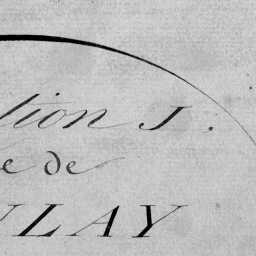 tion J.
e de
ULAY